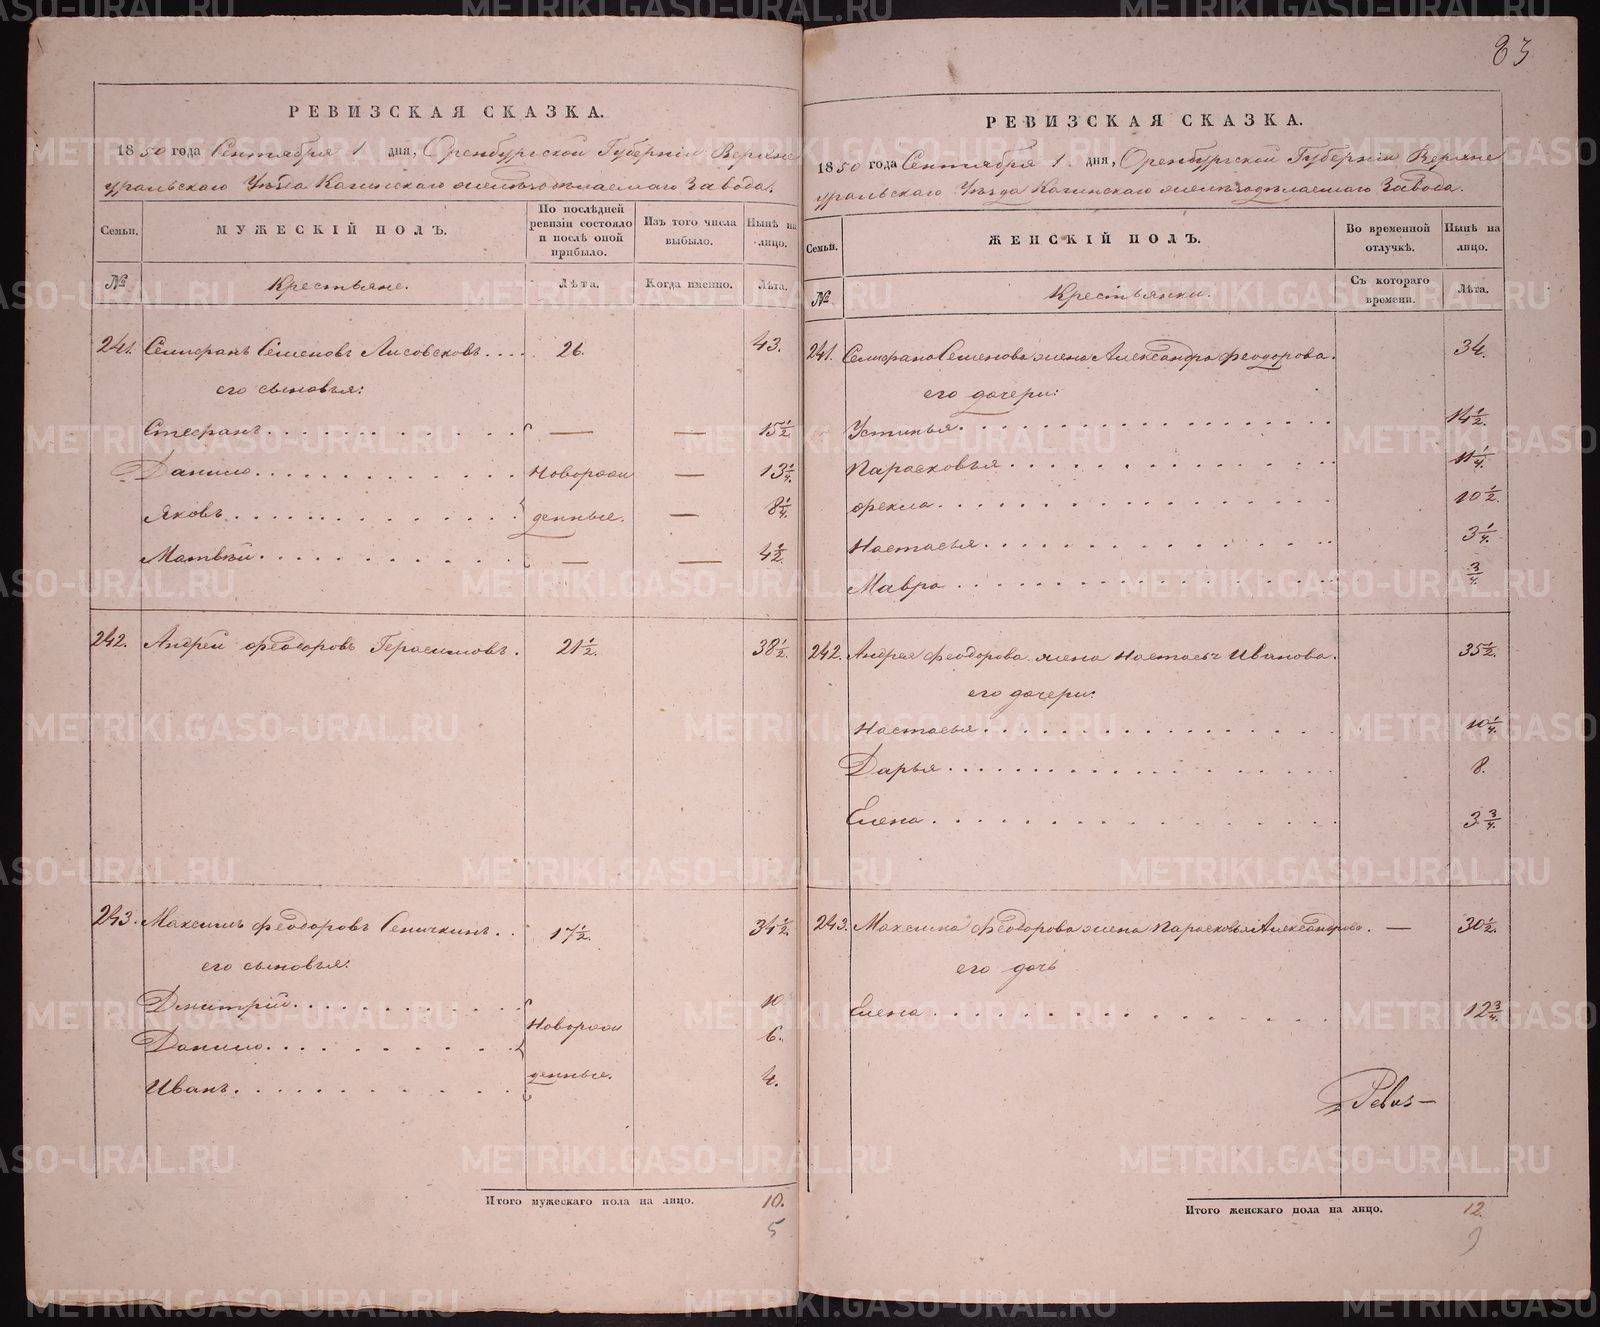 83
РЕВИЗСКАЯ СКАЗКА.
1850 года Сентября 1 дня, Оренбургской Губерніи Верхне
уральскаго Уѣзда Кагинскаго желѣзодѣлаемаго Завода.
Семьи.
МУЖЕСКІЙ ПОЛЪ.
По послѣдней ревизіи состояло и послѣ оной прибыло.
Изъ того числа выбыло.
Нынѣ на лицо.
№
Крестьяне.
Лѣта.
Когда именно.
Лѣта.
241. Семеновъ Лисовсковъ. 26. 43.
его сыновья:
Стефанъ — — 15 1/2.
Данило Новорож — 13 1/4.
Яковъ денные. — 8 1/4.
Матвѣй — — 4 1/2.
242. Андрей Феодоровъ Герасимовъ. 21 1/2. 38 1/2.
243. Максимъ Феодоровъ Сеничкинъ. 17 1/2. 34 1/2.
его сыновья:
Дмитрій 10.
Новорож
Данило 6.
Иванъ денные. 4.
Итого мужескаго пола на лицо. 10.
5
РЕВИЗСКАЯ СКАЗКА.
1850 года Сентября 1 дня, Оренбургской Губерніи Верхне
уральскаго Уѣзда Кагинскаго желѣзодѣлаемаго Завода.
Семьи.
ЖЕНСКІЙ ПОЛЪ.
Во временной отлучкѣ.
Нынѣ на лицо.
№
Крестьянки.
Съ котораго времени.
Лѣта.
241. Семенова жена Александра Феодорова. 34.
его дочери:
Устинья 14 1/2.
Парасковья 11 1/4.
Фекла 10 1/2.
Настасья 3 1/4.
Мавра 3/4.
242. Андрея Феодорова жена Настасья Иванова. 35 1/2.
его дочери:
Настасья 10 1/4.
Дарья 8.
Елена 3 3/4.
243. Максима Феодорова жена Парасковья Александрова. — 30 1/2.
его дочь
Елена 12 3/4.
Ревиз—
Итого женскаго пола на лицо. 12.
9
METRIKI.GASO-URAL.RU